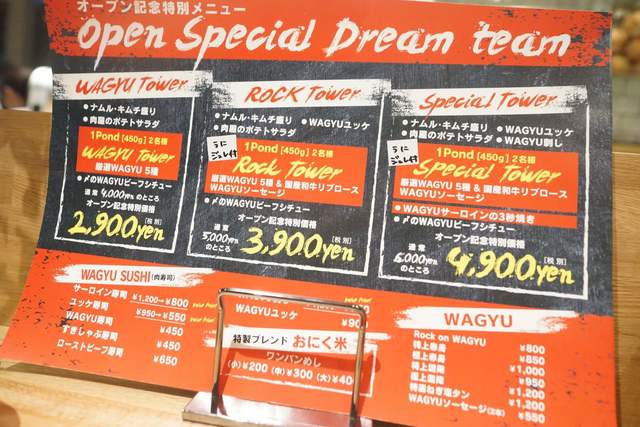 オープン記念特別メニュー
Open Special Dream team
WAGYU Tower
● ナムル・キムチ盛り
● 肉屋のポテトサラダ
1Pond [450g] 2名様
WAGYU Tower
厳選WAGYU 5種
● 〆のWAGYUビーフシチュー
通常 4,000yen のところ
オープン記念特別価格
[税別]
2,900yen
ROCK Tower
● ナムル・キムチ盛り
● WAGYUユッケ
● 肉屋のポテトサラダ
うにジュレ付
1Pond [450g] 2名様
Rock Tower
厳選WAGYU 5種 & 国産和牛リブロース
WAGYUソーセージ
● 〆のWAGYUビーフシチュー
オープン記念特別価格
通常 5,000yen のところ
[税別]
3,900yen
Special Tower
● ナムル・キムチ盛り
● WAGYUユッケ
● 肉屋のポテトサラダ
● WAGYU刺し
うにジュレ付
1Pond [450g] 2名様
Special Tower
厳選WAGYU 5種 & 国産和牛リブロース
WAGYUソーセージ
● WAGYUサーロインの3秒焼き
● 〆のWAGYUビーフシチュー
オープン記念特別価格
通常 6,000yen のところ
[税別]
4,900yen
WAGYU SUSHI (肉寿司)
サーロイン寿司 ¥1,200→¥800
ユッケ寿司 ¥950→¥550
WAGYU寿司 ¥450
すきしゃぶ寿司 ¥450
ローストビーフ寿司 ¥650
WAGYUユッケ
特製ブレンド おにく米
ワンパンめし
(小) ¥200 (中) ¥300 (大)
WAGYU
Rock on WAGYU ¥800
特上赤身 ¥850
極上赤身 ¥1,000
特上霜降 ¥950
極上霜降 ¥1,200
特選ねぎ塩タン ¥1,200
WAGYUソーセージ(2本) ¥550